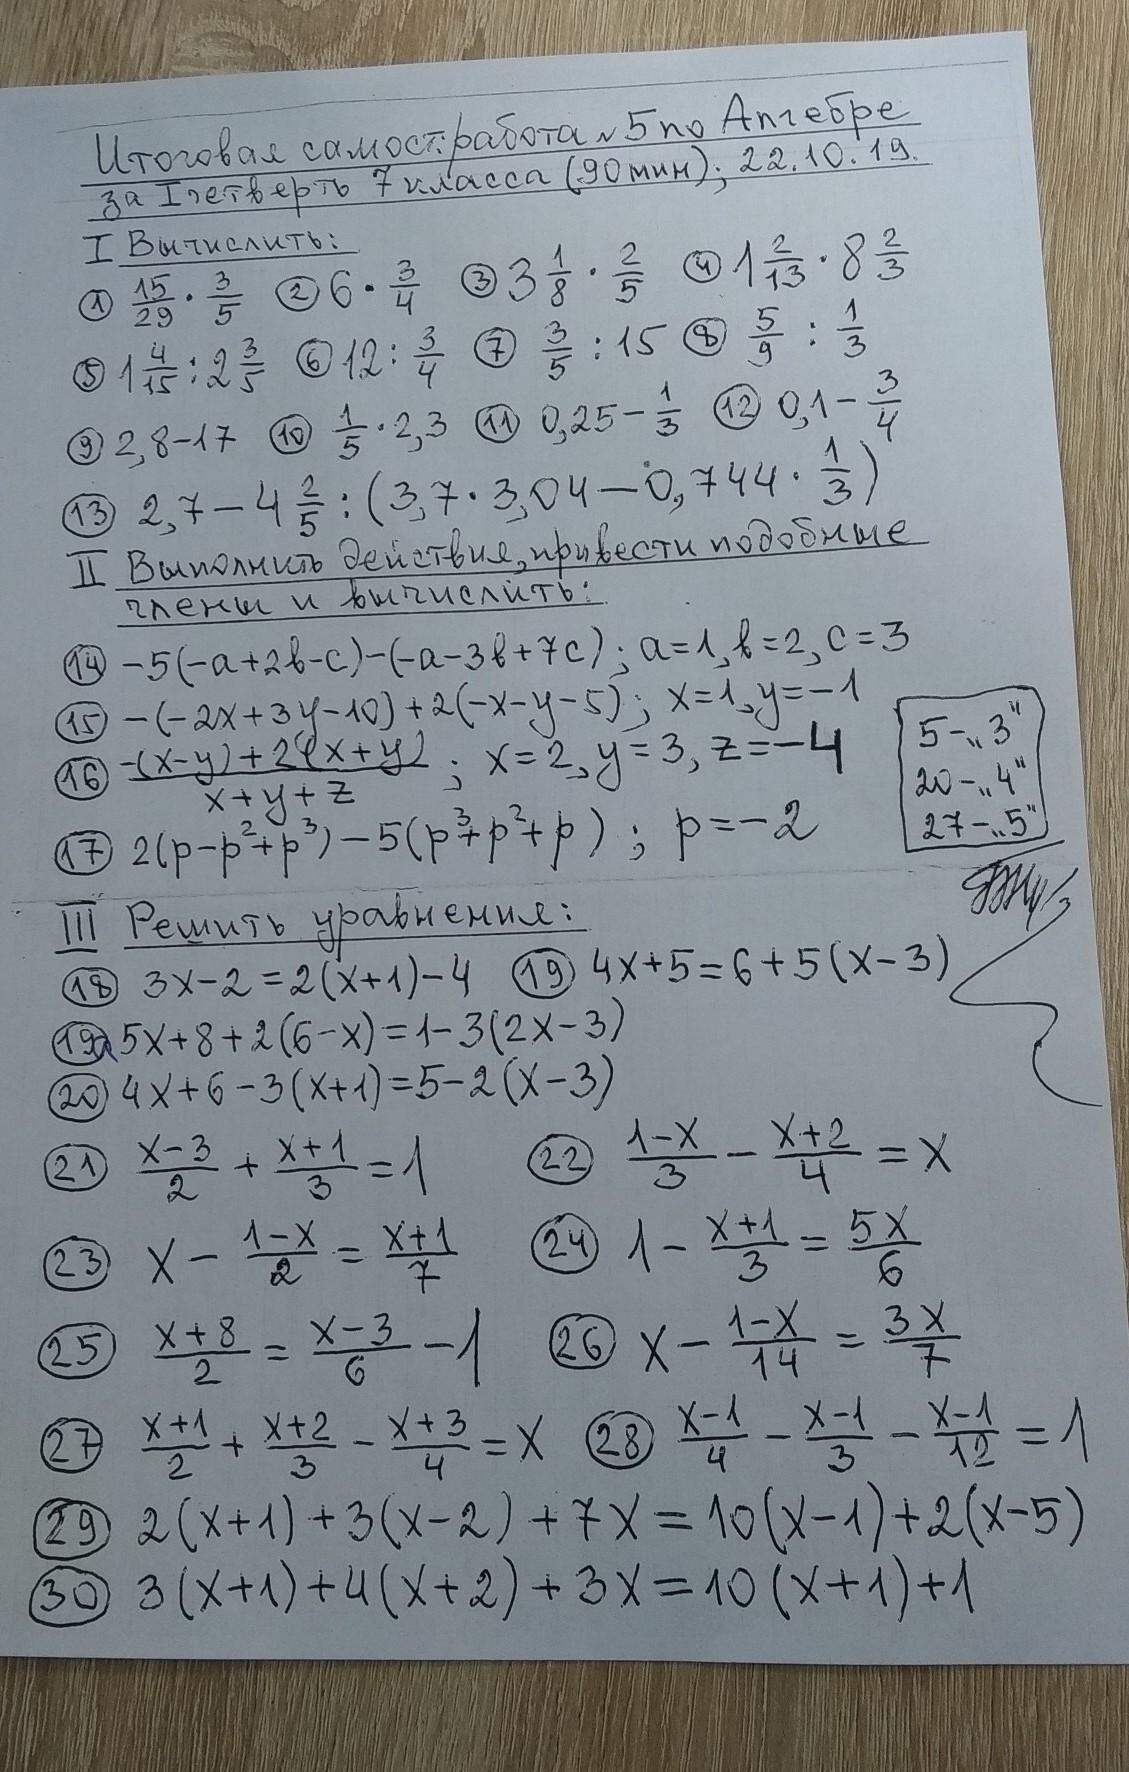 Итоговая самост.работа N 5 по Алгебре
за I четверть 7 класса (90 мин); 22.10.19.
I Вычислить:
① 15/29 · 3/5 ② 6 · 3/4 ③ 3 1/8 · 2/5 ④ 1 2/13 · 8 2/3
⑤ 1 4/15 : 2 3/5 ⑥ 12 : 3/4 ⑦ 3/5 : 15 ⑧ 5/9 : 1/3
⑨ 2,8-17 ⑩ 1/5 · 2,3 ⑪ 0,25 - 1/3 ⑫ 0,1 - 3/4
⑬ 2,7 - 4 2/5 : (3,7 · 3,04 - 0,744 · 1/3)
II Выполнить действия, привести подобные
члены и вычислить:
⑭ -5(-a+2b-c)-(-a-3b+7c); a=1, b=2, c=3
⑮ -(-2x+3y-10)+2(-x-y-5); x=1, y=-1
⑯ (-(x-y)+2(x+y))/(x+y+z); x=2, y=3, z=-4
⑰ 2(p-p²+p³)-5(p³+p²+p); p=-2
5-„3"
20-„4"
27-„5"
III Решить уравнения:
⑱ 3x-2=2(x+1)-4 ⑲ 4x+5=6+5(x-3)
⑲a 5x+8+2(6-x)=1-3(2x-3)
⑳ 4x+6-3(x+1)=5-2(x-3)
㉑ (x-3)/2 + (x+1)/3 = 1 ㉒ (1-x)/3 - (x+2)/4 = x
㉓ x - (1-x)/2 = (x+1)/7 ㉔ 1 - (x+1)/3 = 5x/6
㉕ (x+8)/2 = (x-3)/6 - 1 ㉖ x - (1-x)/14 = 3x/7
㉗ (x+1)/2 + (x+2)/3 - (x+3)/4 = x ㉘ (x-1)/4 - (x-1)/3 - (x-1)/12 = 1
㉙ 2(x+1)+3(x-2)+7x=10(x-1)+2(x-5)
㉚ 3(x+1)+4(x+2)+3x=10(x+1)+1